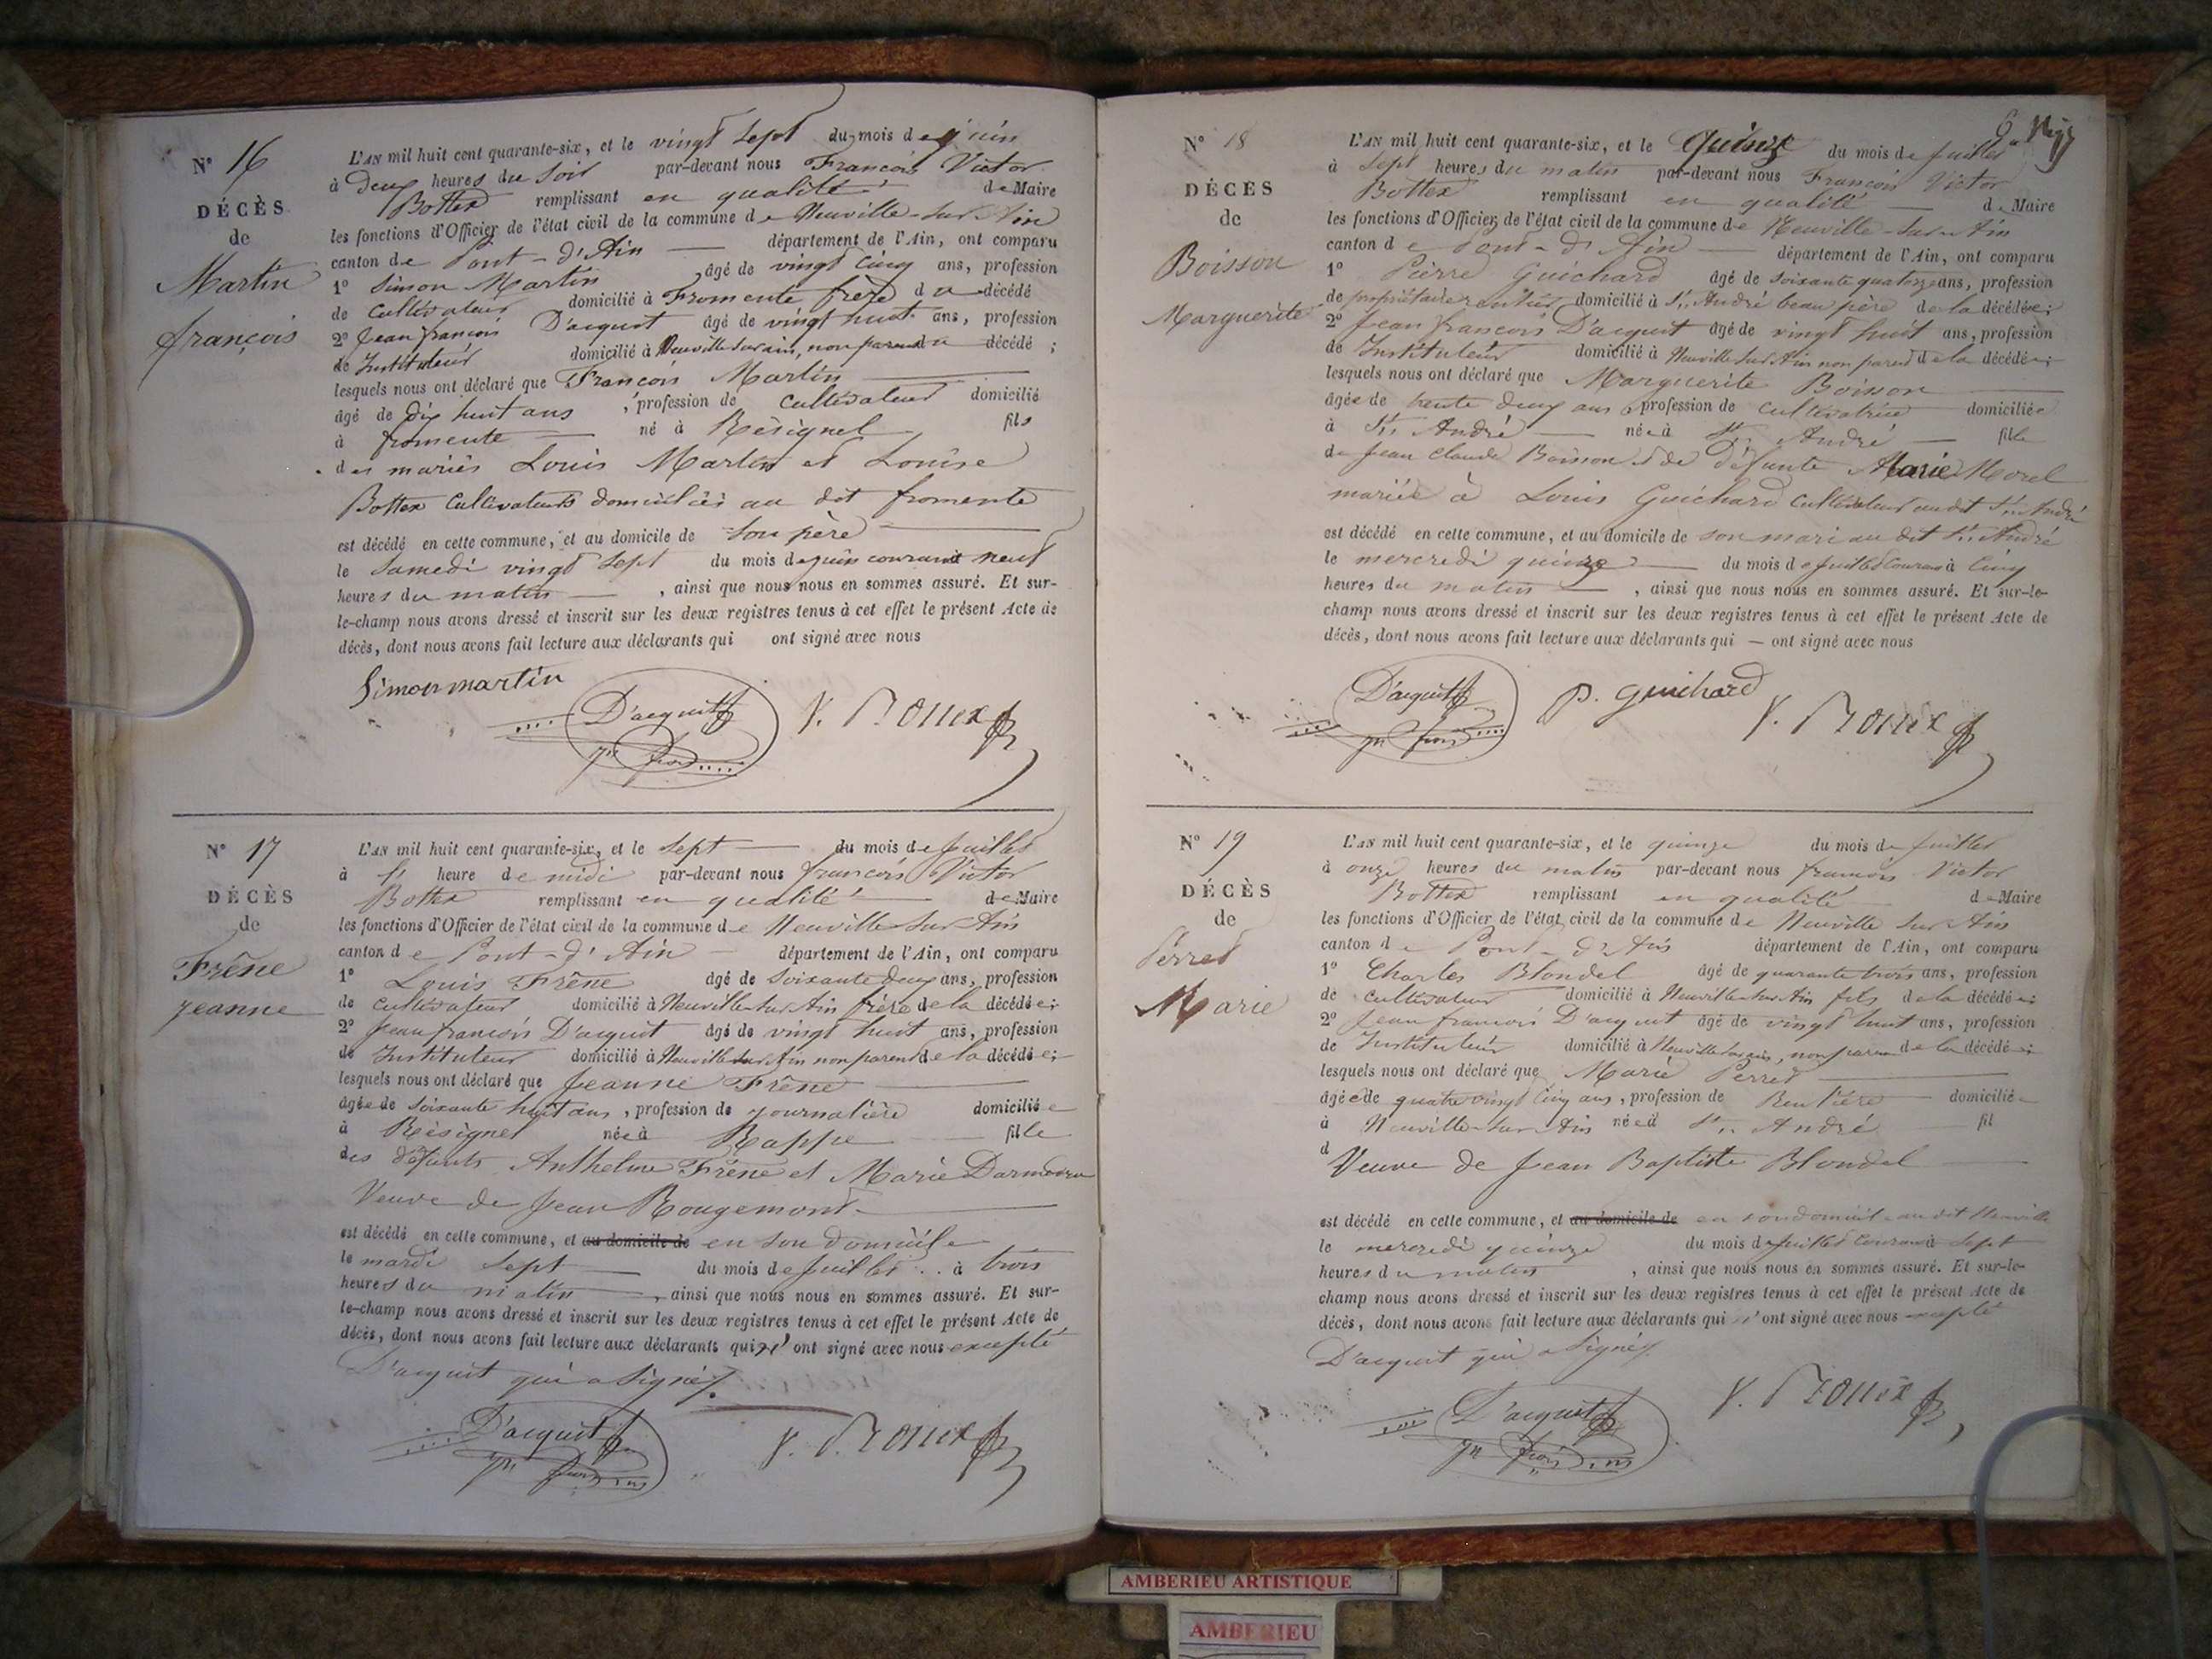 N° 16
DÉCÈS
de
Martin
françois
L'AN mil huit cent quarante-six, et le vingt sept du mois de juin
à deux heures du soir par-devant nous François Victor
Bottex remplissant en qualité de Maire
les fonctions d'Officier de l'état civil de la commune de Neuville-sur-Ain
canton de Pont-d'Ain département de l'Ain, ont comparu
1° Simon Martin âgé de vingt cinq ans, profession
de cultivateur domicilié à Fromente frère du décédé
2° Jean françois D'acquit âgé de vingt huit ans, profession
de Instituteur domicilié à Neuville sur ain, non parent du décédé ;
lesquels nous ont déclaré que François Martin
âgé de dix huit ans, profession de cultivateur domicilié
à fromente né à Résignel fils
des mariés Louis Martin et Louise
Bottex cultivateurs domiciliés au dit fromente
est décédé en cette commune, et au domicile de son père
le samedi vingt sept du mois de juin courant à neuf
heures du matin, ainsi que nous nous en sommes assuré. Et sur-
le-champ nous avons dressé et inscrit sur les deux registres tenus à cet effet le présent Acte de
décès, dont nous avons fait lecture aux déclarants qui ont signé avec nous
Simon martin D'acquit V. Bottex
jn fçois
N° 17
DÉCÈS
de
Frêne
jeanne
L'AN mil huit cent quarante-six, et le sept du mois de juillet
à heure de midi par-devant nous françois Victor
Bottex remplissant en qualité de Maire
les fonctions d'Officier de l'état civil de la commune de Neuville sur Ain
canton de Pont-d'Ain département de l'Ain, ont comparu
1° Louis Frêne âgé de soixante deux ans, profession
de cultivateur domicilié à Neuville-sur-Ain frère de la décédée ;
2° Jean françois D'acquit âgé de vingt huit ans, profession
de Instituteur domicilié à Neuville sur Ain non parent de la décédée ;
lesquels nous ont déclaré que Jeanne Frêne
âgée de soixante huit ans, profession de journalière domiciliée
à Résignel née à Rappe fille
des défunts Anthelme Frêne et Marie
Veuve de Jean Rougemont
est décédé en cette commune, et au domicile de en son domicile
le mardi sept du mois de juillet .. à trois
heures du matin, ainsi que nous nous en sommes assuré. Et sur-
le-champ nous avons dressé et inscrit sur les deux registres tenus à cet effet le présent Acte de
décès, dont nous avons fait lecture aux déclarants qui n'ont signé avec nous excepté
D'acquit qui a signé.
D'acquit V. Bottex
jn fçois
N° 18
DÉCÈS
de
Boisson
Marguerite
L'AN mil huit cent quarante-six, et le quinze du mois de juillet
à sept heures du matin par-devant nous François Victor
Bottex remplissant en qualité de Maire
les fonctions d'Officier de l'état civil de la commune de Neuville-sur-Ain
canton de Pont-d'Ain département de l'Ain, ont comparu
1° Pierre Guichard âgé de soixante quatorze ans, profession
de propriétaire rentier domicilié à St. André beau père de la décédée ;
2° Jean françois D'acquit âgé de vingt huit ans, profession
de Instituteur domicilié à Neuville sur Ain non parent de la décédée ;
lesquels nous ont déclaré que Marguerite Boisson
âgée de trente deux ans, profession de cultivatrice domiciliée
à St. André née à St. André fille
de Jean Claude Boisson et de défunte Marie Morel
mariée à Louis Guichard cultivateur au dit St. André
est décédé en cette commune, et au domicile de son mari au dit St. André
le mercredi quinze du mois de juillet courant à cinq
heures du matin, ainsi que nous nous en sommes assuré. Et sur-le-
champ nous avons dressé et inscrit sur les deux registres tenus à cet effet le présent Acte de
décès, dont nous avons fait lecture aux déclarants qui — ont signé avec nous
D'acquit P. Guichard V. Bottex
jn fçois
N° 19
DÉCÈS
de
Perret
Marie
L'AN mil huit cent quarante-six, et le quinze du mois de juillet
à onze heures du matin par-devant nous françois Victor
Bottex remplissant en qualité de Maire
les fonctions d'Officier de l'état civil de la commune de Neuville sur Ain
canton de Pont-d'Ain département de l'Ain, ont comparu
1° Charles Blondel âgé de quarante trois ans, profession
de cultivateur domicilié à Neuville-sur-Ain fils de la décédée ;
2° Jean françois D'acquit âgé de vingt huit ans, profession
de Instituteur domicilié à Neuville sur ain, non parent de la décédée ;
lesquels nous ont déclaré que Marie Perret
âgée de quatre vingt cinq ans, profession de Rentière domiciliée
à Neuville-sur-Ain née à St. André fil
d
Veuve de Jean Baptiste Blondel
est décédé en cette commune, et au domicile de en son domicile au dit Neuville
le mercredi quinze du mois de juillet courant à sept
heures du matin, ainsi que nous nous en sommes assuré. Et sur-le-
champ nous avons dressé et inscrit sur les deux registres tenus à cet effet le présent Acte de
décès, dont nous avons fait lecture aux déclarants qui n'ont signé avec nous excepté
D'acquit qui a signé.
D'acquit V. Bottex
jn fçois
AMBERIEU ARTISTIQUE
AMBERIEU